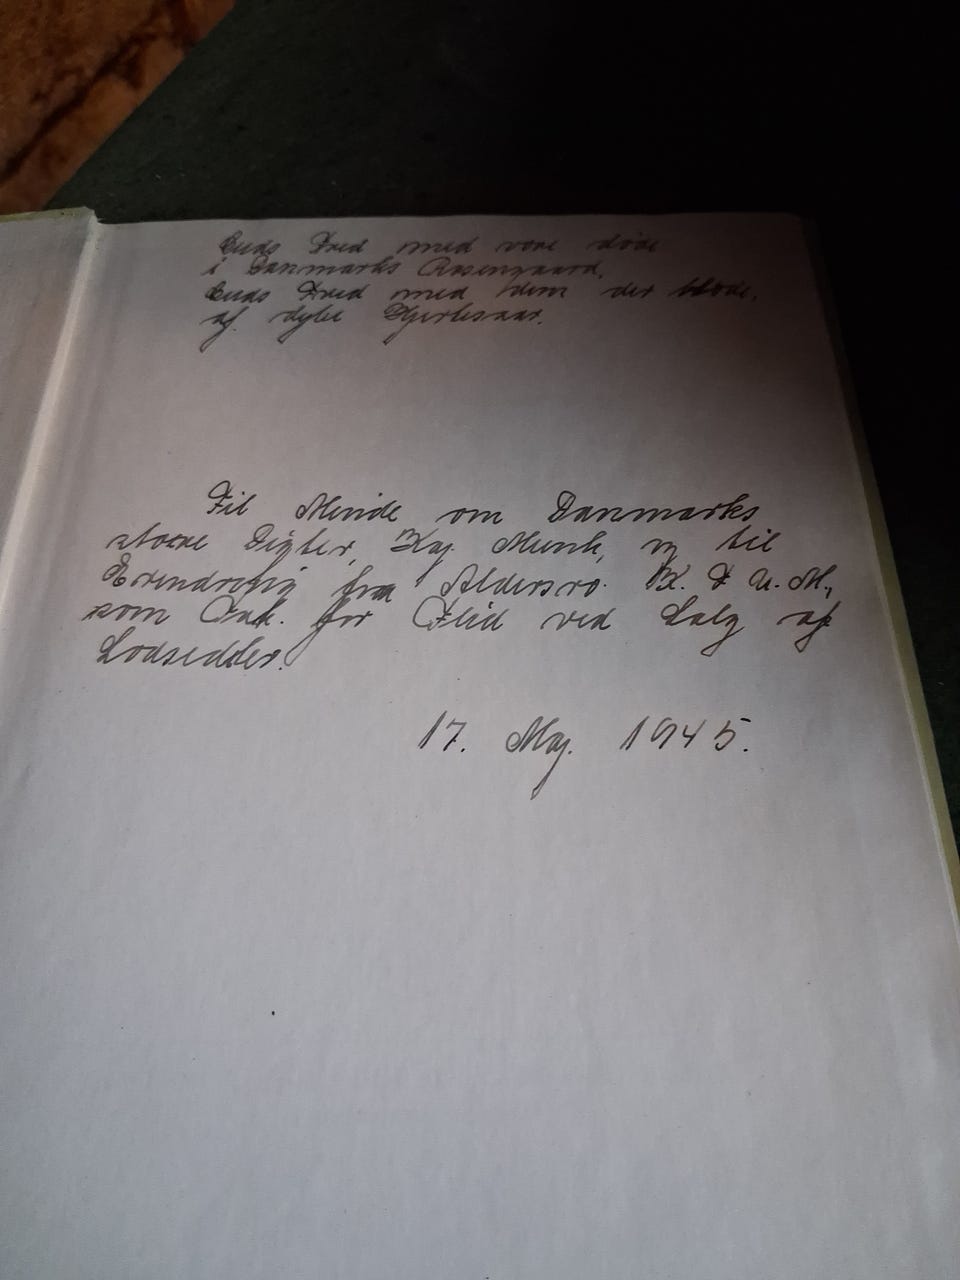 Guds Fred med vore døde
i Danmarks Rosengaard,
Guds Fred med dem der bløde,
af dybe Hjertesaar.
Til Minde om Danmarks
store Digter, Kaj Munk, og til
Erindring fra Aldersro. K. F. U. M.,
som Tak. for Flid ved Salg af
Lodsedder.
17. Maj. 1945.